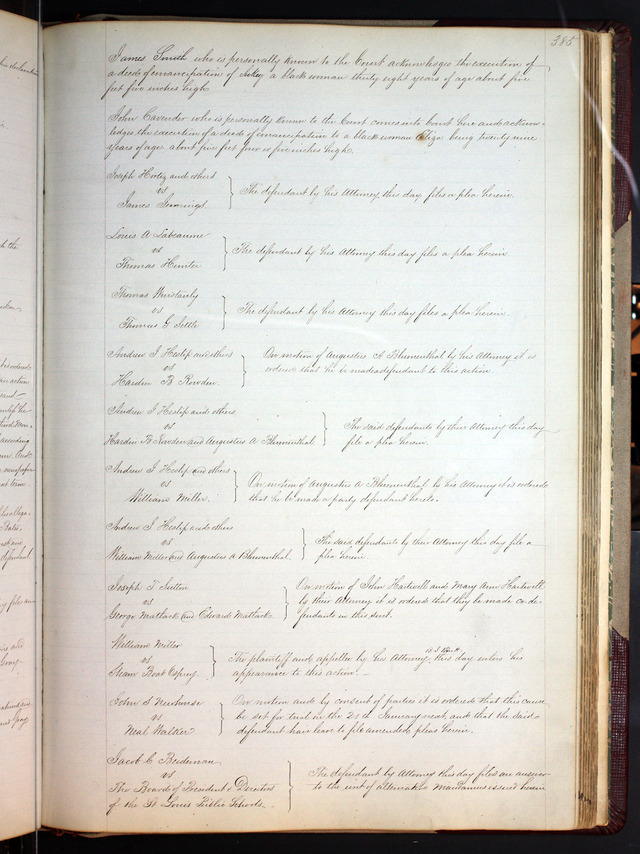 385
James Smith who is personally known to the Court acknowledges the execution of
a deed of emancipation of a black woman thirty eight years of age about five
feet five inches high
John Cavender who is personally known to the Court comes into Court here and acknow-
ledges the execution of a deed of emancipation to a black woman Eliza being twenty nine
years of age about five feet four or five inches high.
Joseph Hortiz and others
vs
James Jennings
The defendant by his Attorney this day files a plea herein.
Louis A Labeaume
vs
Thomas Hunter
The defendant by his Attorney this day files a plea herein
Thomas
vs
Thomas G Settle
The defendant by his Attorney this day files a plea herein.
Andrew J Heslip and others
vs
Harden B Rowden
On motion of Augustus A Blumenthal by his Attorney it is
ordered that he be made a defendant to this action
Andrew J Heslip and others
vs
Harden B Rowden and Augustus A Blumenthal
The said defendants by their Attorney this day
file a plea herein.
Andrew J Heslip and others
vs
William Miller
On motion of Augustus A Blumenthal by his Attorney it is ordered
that he be made a party defendant hereto.
Andrew J Heslip and others
vs
William Miller and Augustus A Blumenthal
The said defendants by their Attorney this day file a
plea herein
Joseph T Sutton
vs
George Matlack and Edward Matlack
On motion of John Hartwell and Mary Ann Hartwell
by their Attorney it is ordered that they be made co-de-
fendants in this suit.
William Miller
vs
Steam Boat Osprey
The plaintiff and appellee by his Attorney this day enters his
appearance to this action.
John S Newhouse
vs
Neal Walker
On motion and by consent of parties it is ordered that this cause
be set for trial in the 20th January next, and that the said
defendant have leave to file amended pleas herein.
Jacob C Buderman
vs
The Board of President & Directors
of the St Louis Public Schools.
The defendant by Attorney this day files an answer
to the writ of alternative Mandamus issued herein